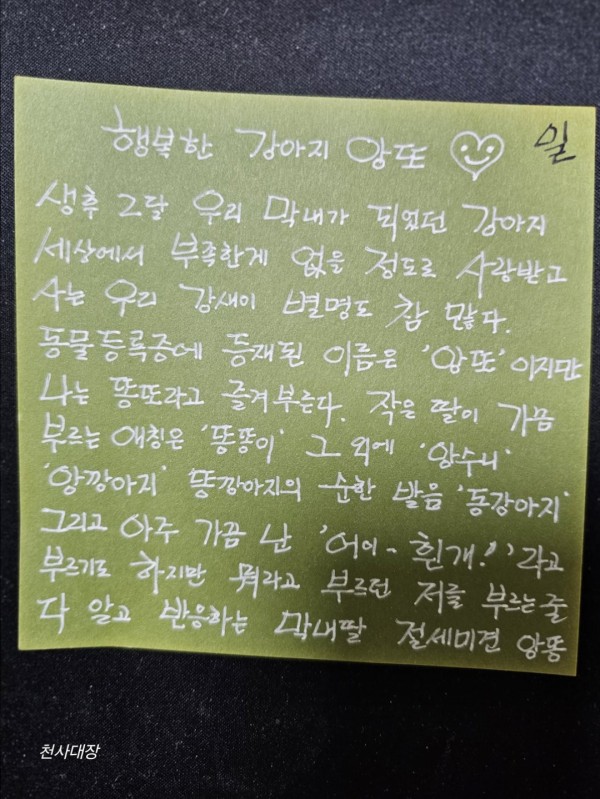 행복한 강아지 앙또
일
생후 2달 우리 막내가 되었던 강아지
세상에서 부족한게 없을 정도로 사랑받고
사는 우리 강새이 별명도 참 많다.
동물등록증에 등재된 이름은 '앙또'이지만
나는 똥또라고 즐겨부른다. 작은 딸이 가끔
부르는 애칭은 '똥똥이' 그 외에 '앙수니'
'앙깡아지' 똥깡아지의 순한 발음 '동강아지'
그리고 아주 가끔 난 '어이~ 흰개!'라고
부르기도 하지만 뭐라고 부르던 저를 부르는줄
다 알고 반응하는 막내딸 절세미견 앙똥
천사대장